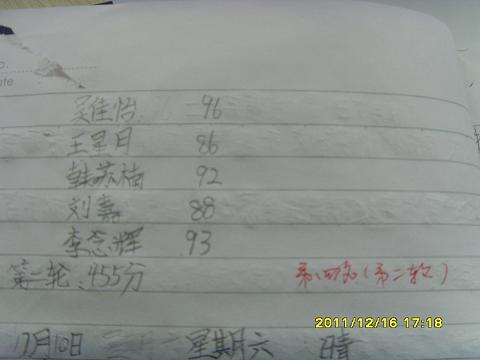 o.
ate
佳怡 96
王星月 86
韩苏楠 92
刘嘉 88
李 辉 93
第一轮:455分 第四名(第二轮)
2011/12/16 17:18
12月10日 星期六 晴